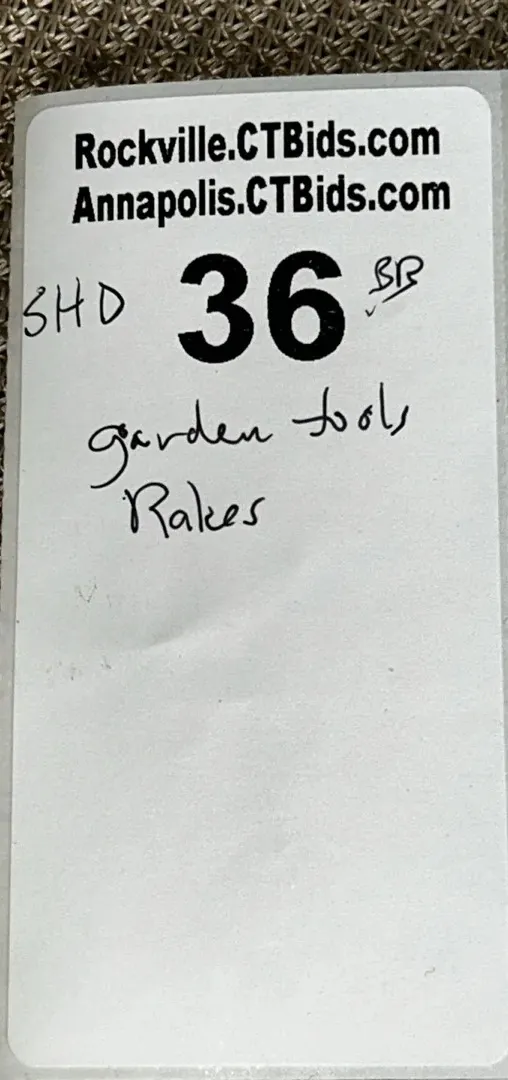 Rockville.CTBids.com
Annapolis.CTBids.com
SHD 36 BB
garden tools
Rakes